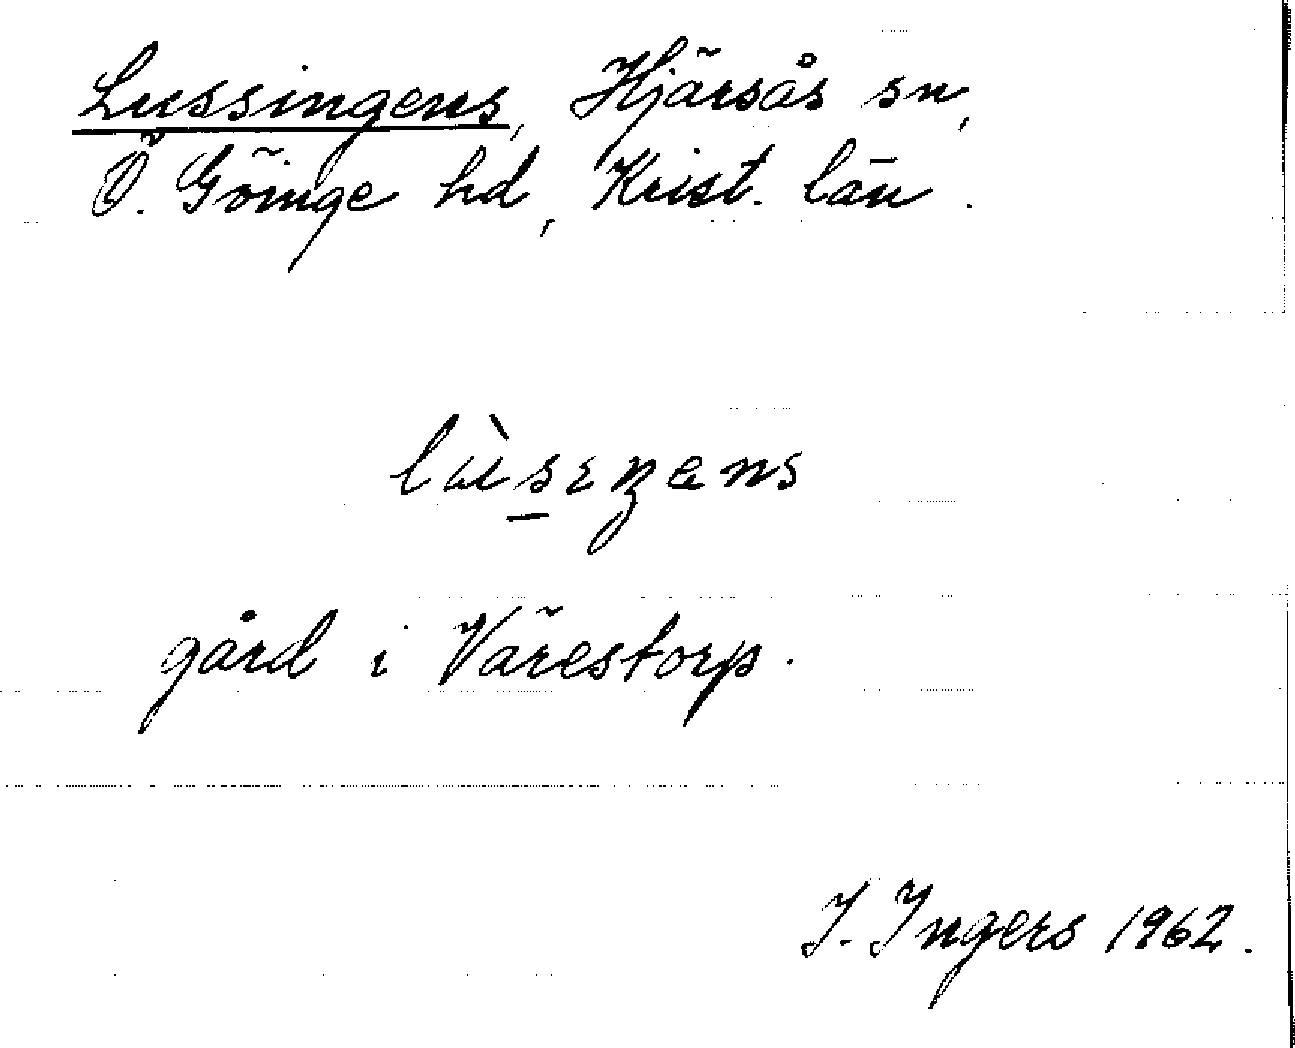 Lussingens, Hjärsås sn,
Ö. Göinge hd, Krist. län.
lùs̲ɛŋens
gård i Värestorp.
I. Ingers 1962.